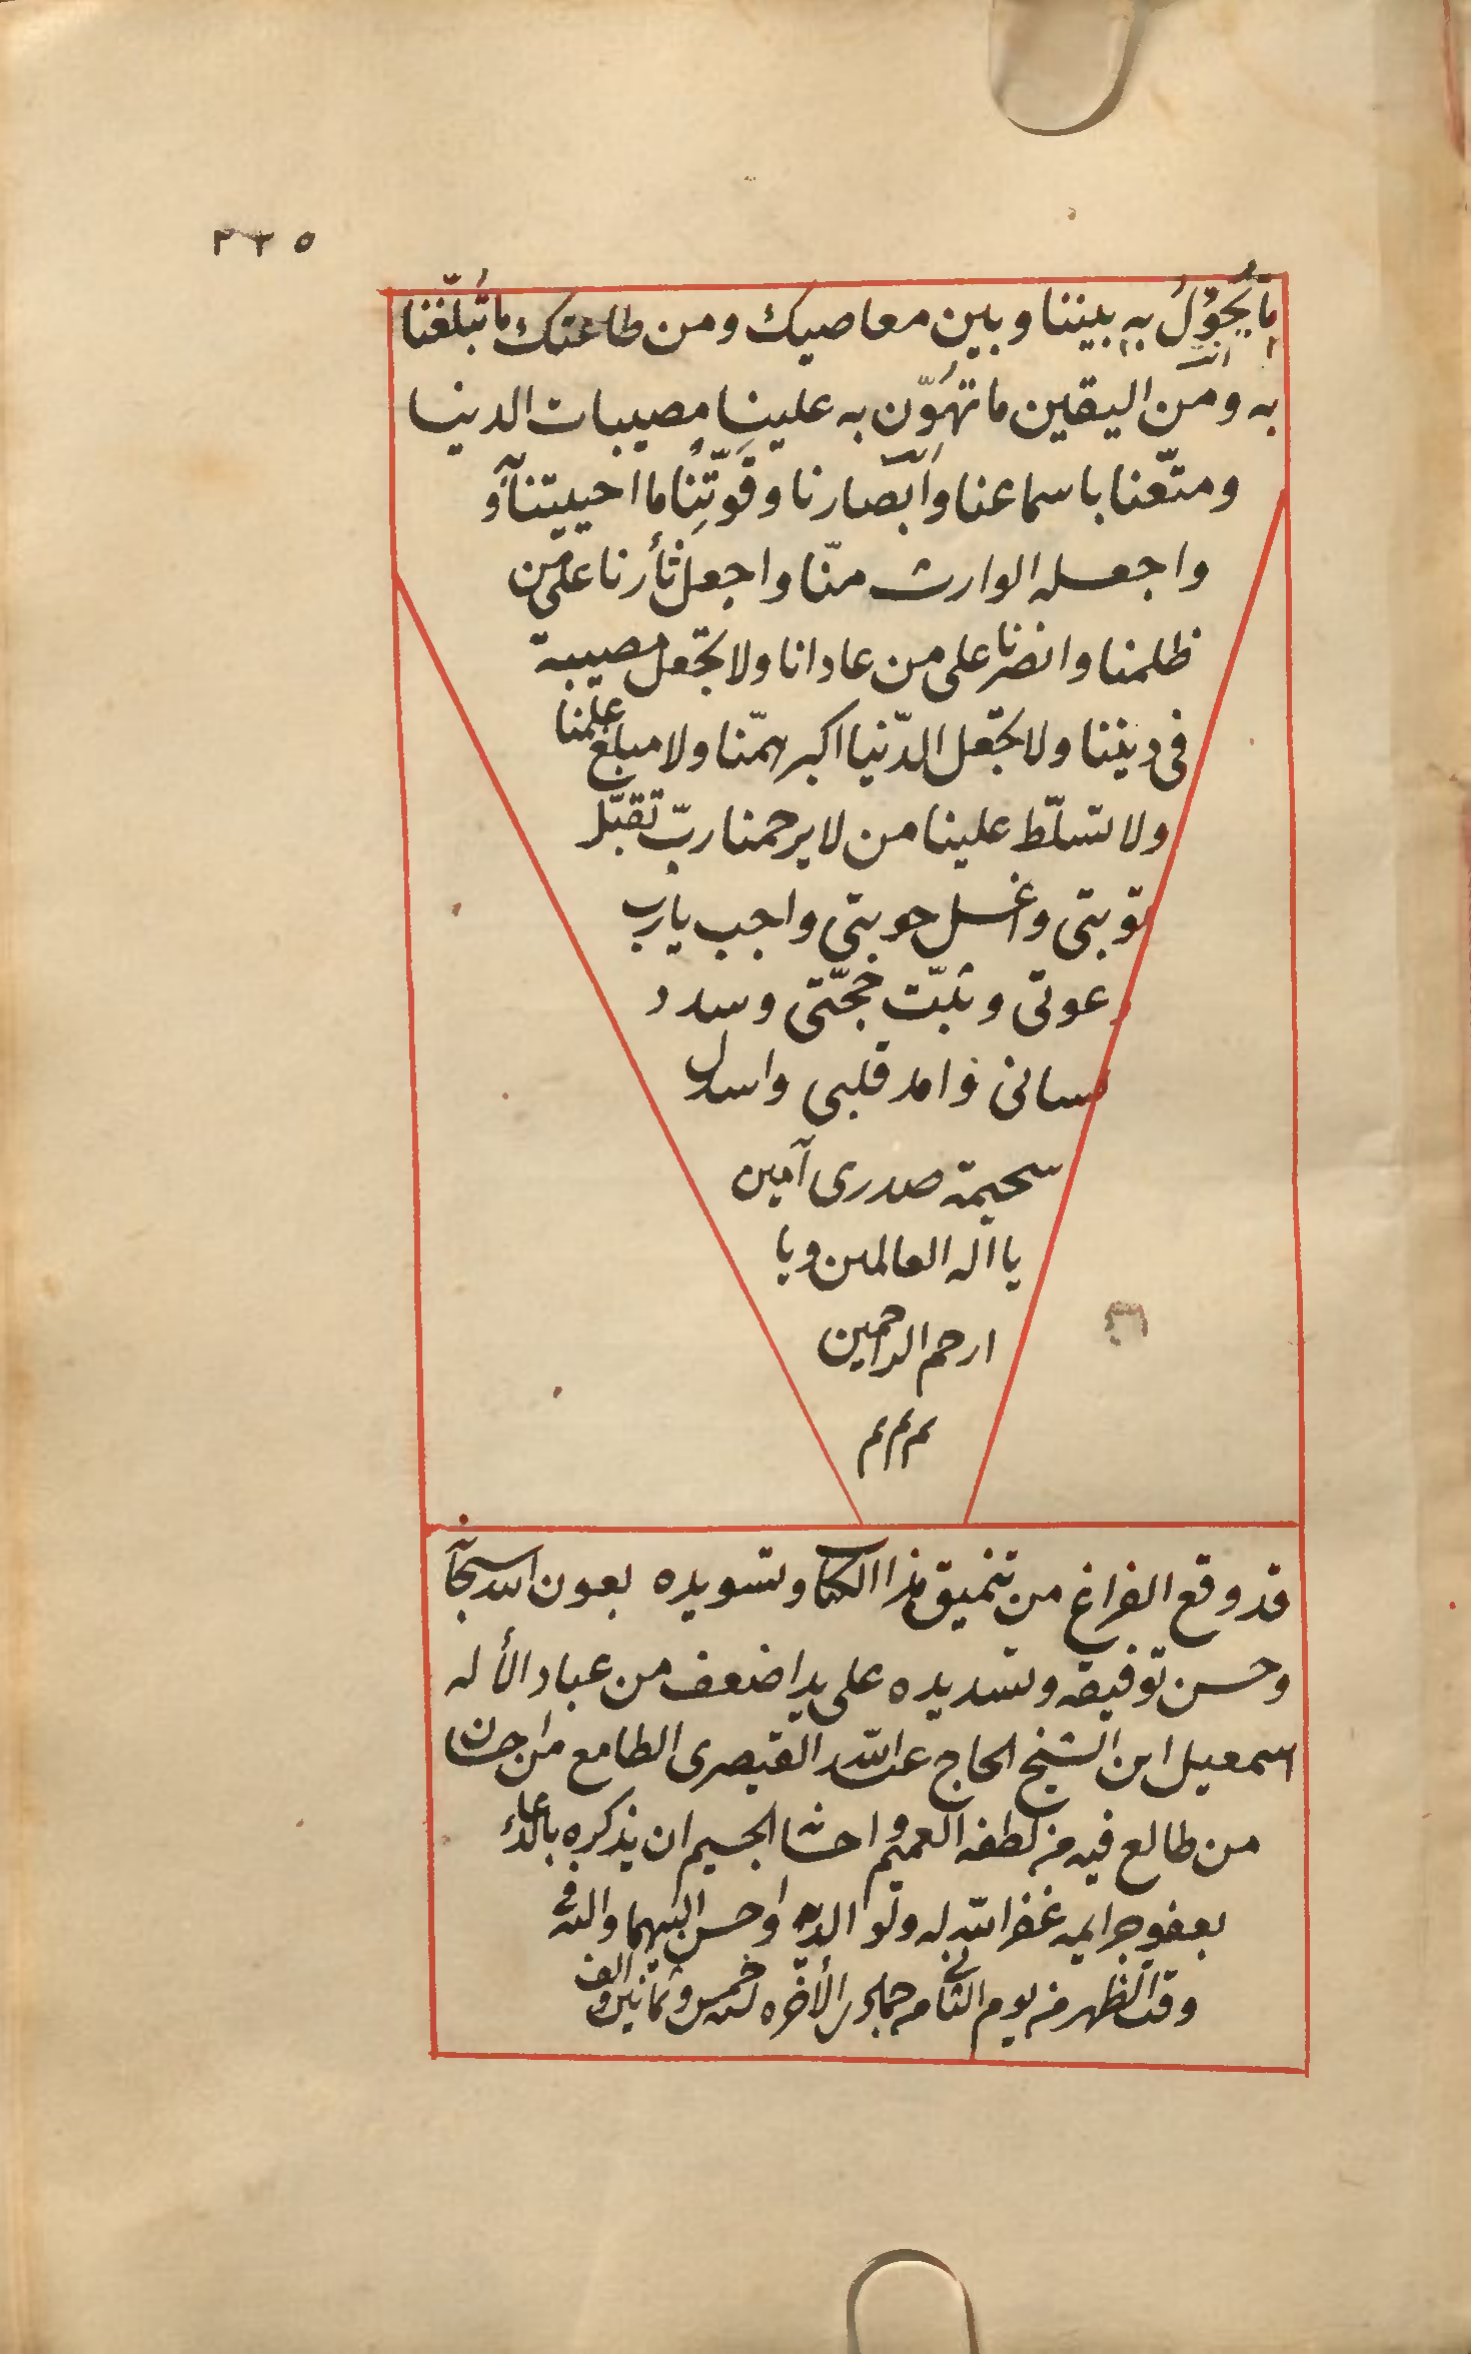 ٣٢٥
ما يَحُوْلُ به بيننا وبين معاصيك ومن طاعتك ما تُبلّغنا
به ومن اليقين ما تُهَوّن به علينا مصيبات الدنيا
ومتّعنا باسماعنا وابصارنا وقُوّتِنا ما احييتنا و
واجعله الوارث منّا واجعل ثأرنا على من
ظلمنا وانصرنا على من عادانا ولا تجعل مصيبة
فى ديننا ولا تجعل الدّنيا اكبر همّنا ولا مبلغ علمنا
ولا تسلّط علينا من لا يرحمنا ربّ تقبّل
توبتى واغسل حوبتى واجب يارب
دعوتى وثبّت حجّتى وسدد
لسانى واهد قلبى واسلل
سخيمة صدرى آمين
يا اله العالمين ويا
ارحم الراحمين
م م م
قد وقع الفراغ من تنميق هذا الكتاب وتسويده بعون الله سبحانه
وحسن توفيقه وتسديده على يد اضعف من عباد الأله
اسمعيل ابن الشيخ الحاج عبد الله القيصرى الطامع من احسان
من طالع فيه من لطفه العميم واحسانه الجسيم ان يذكره بالدعاء
بعفو جرايمه غفر الله له ولوالديه واحسن اليهما واليه فى
وقت الظهر من يوم الثانى من جمادى الأخره لسنه خمس وثمانين والف